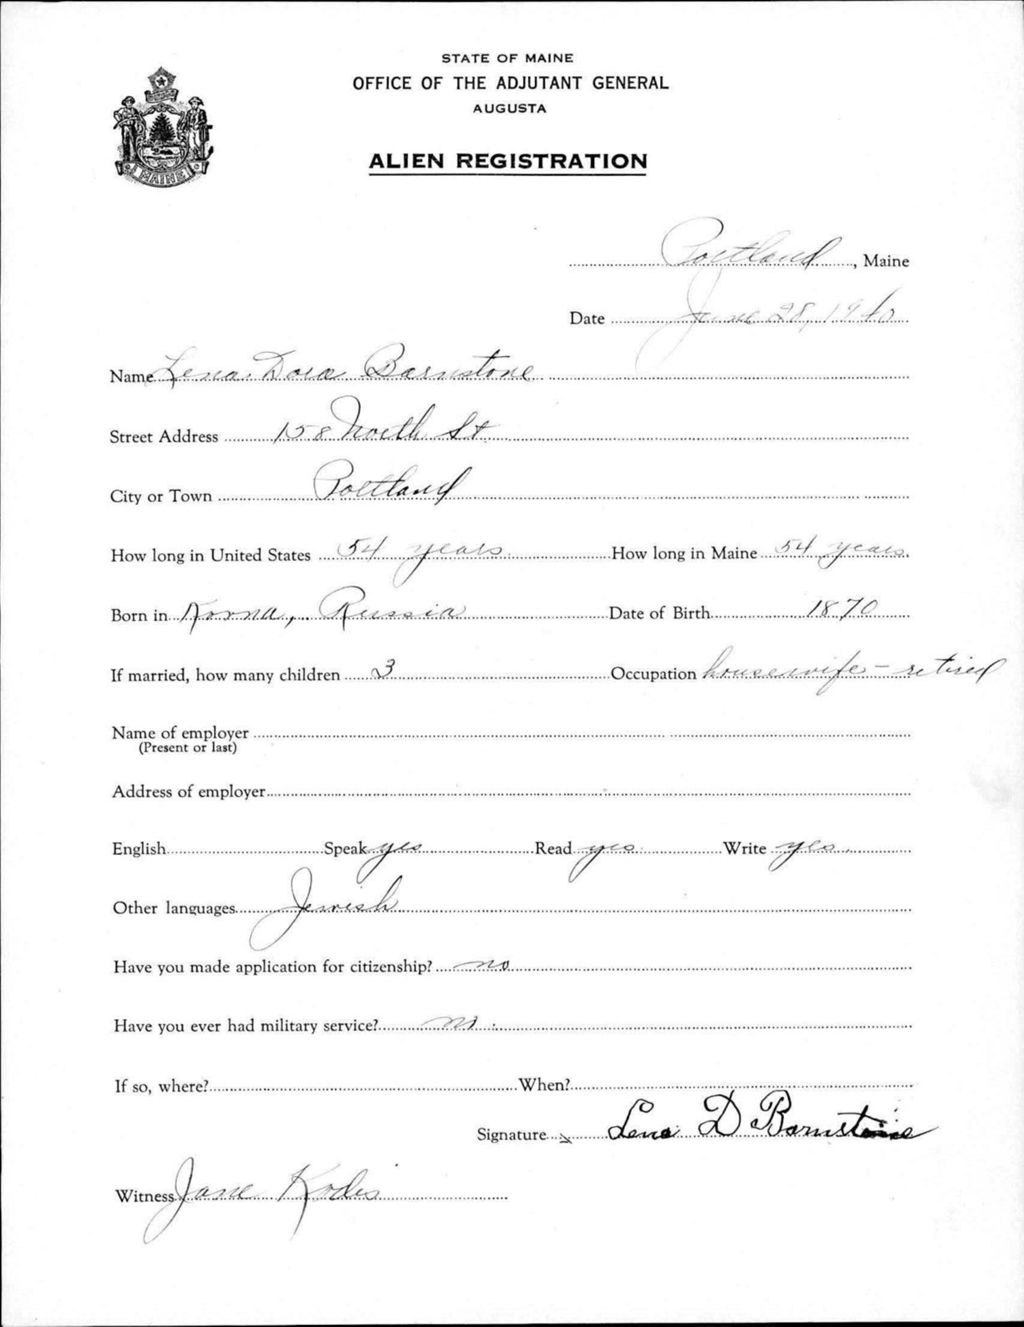 STATE OF MAINE
OFFICE OF THE ADJUTANT GENERAL
AUGUSTA
ALIEN REGISTRATION
MAINE
Portland, Maine
Date June 28, 1940
Name Lena Dora Barnstone
Street Address 158 North St
City or Town Portland
How long in United States 54 years How long in Maine 54 years
Born in Kovna, Russia Date of Birth 1870
If married, how many children 3 Occupation housewife - retired
Name of employer
(Present or last)
Address of employer
English Speak yes Read yes Write yes
Other languages Jewish
Have you made application for citizenship? no
Have you ever had military service? no
If so, where? When?
Signature Lena D Barnstone
Witness Jane Kodis